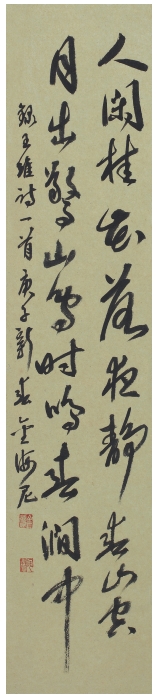 人闲桂花落夜静春山空
月出惊山鸟时鸣春涧中
录王维诗一首庚子新春金海尼